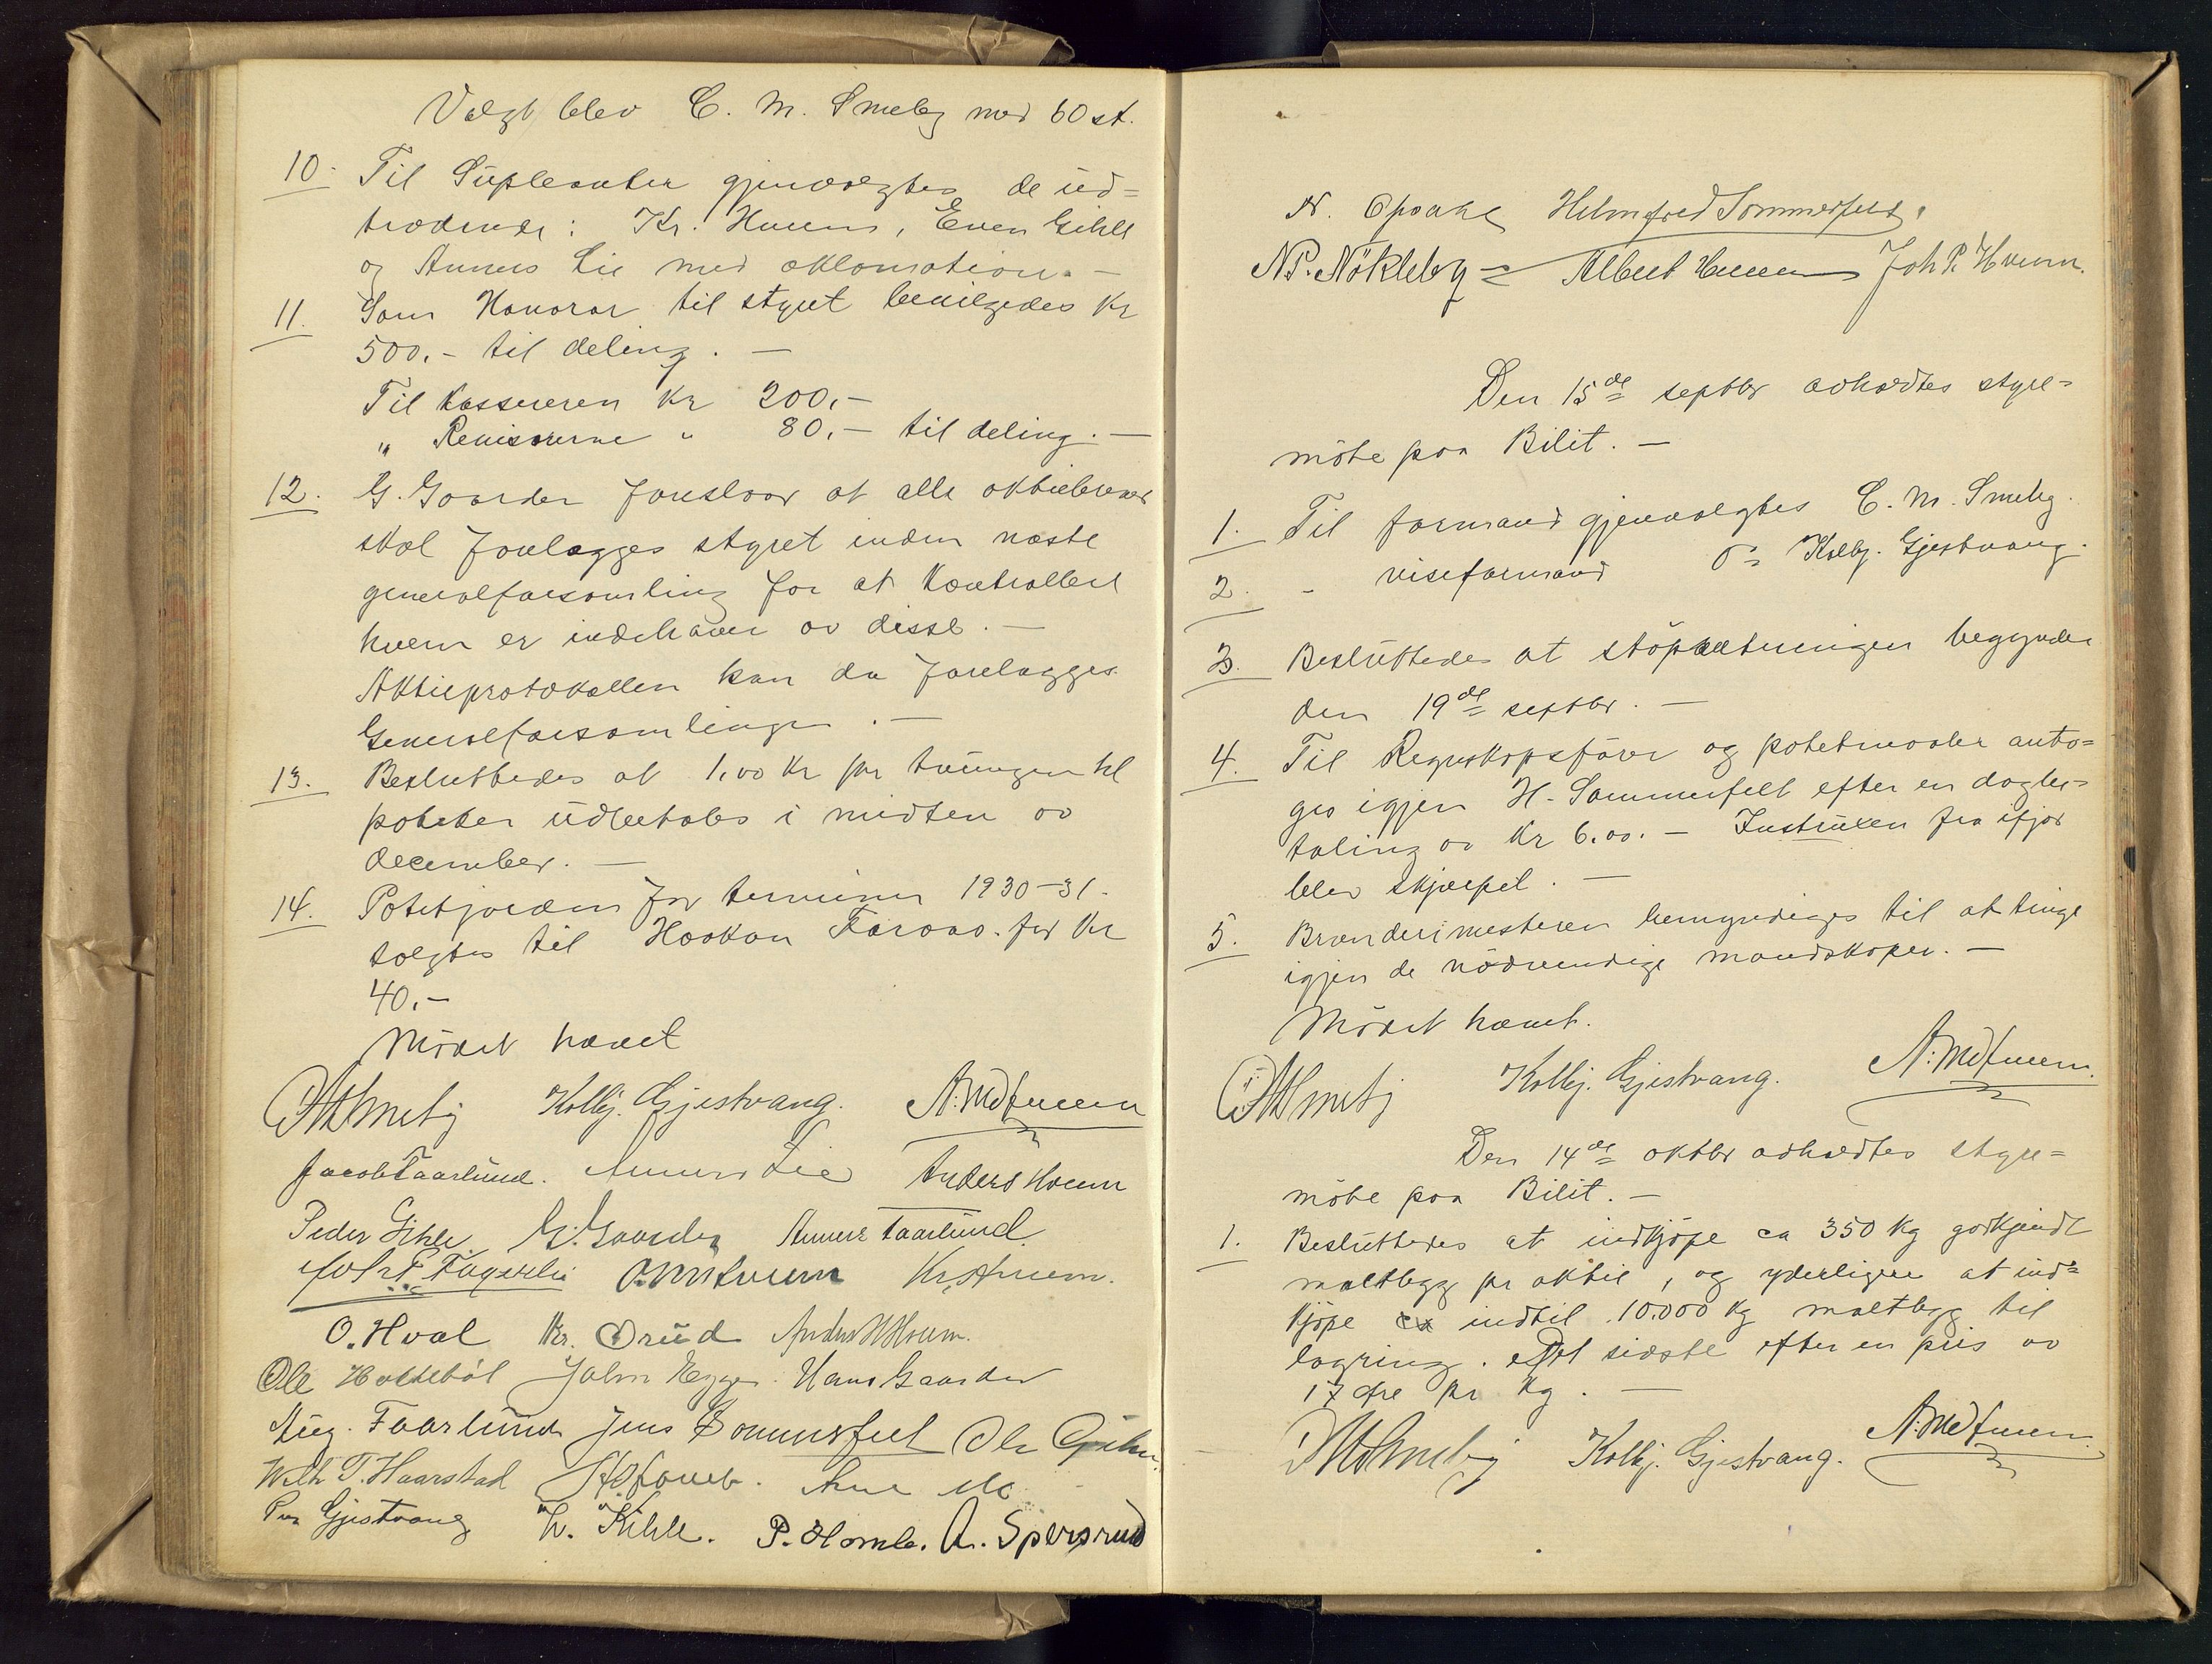 Valgt blev C. M. Smeby med 60 st.
10. Til Süpleanter gjenvalgtes de üd=
trædende: Kr. Huuns, Even Gihle
og Anners Lie med aklamation. —
11. Som Honorar til styret bevilgedes Kr
500.- til deling. —
Til Kassereren Kr 200,-
„ Revisorerne " 80,- til deling. —
12. G. Gaarder foreslaar at alle aktiebrever
skal forelægges styret inden næste
generalforsamling for at Kontrollere
hvem er indehaver av disse. —
Aktieprotokollen kan da forelægges
Generalforsamlingen. —
13. Besluttedes at 1,00 Kr pr tüingen hl
poteter üdbetales i midten av
december. —
14. Potetjorden for terminen 1930-31.
solgtes til Haakon for Kr
40,-
Mödet hævet
CMSmeby Kolbj. Gjestvang. A. M. Huuen
Jacob Taarlund. Anners Lie Anders Hveem
Peder Gihle G. Gaarder Anners Taarlünd
Joh. P. Fügerlie Kr. Hveem.
O. Hval Kr. Drüd Anders H Hveem.
Ole John Egge. Hans Gaarder
Aug. Faarlünd Jens Sommerfelt Ole
Wilh T. Haarstad Arne Mo
Per Gjestvang L. Kihle. P. Homle. A. Spersrud
N. Opsahl Helmfred Sommerfelt.
N. P. Nökleby = Albert Joh P. Hveem.
Den 15de septbr avholdtes styre=
möte paa Bilit. —
1. Til formand gjenvalgtes C. M. Smeby.
2. - viseformand Kolbj. Gjestvang.
3. Besluttedes at støpsætningen begynder
den 19de septbr. —
4. Til Regnskapsförer og potetmaaler anta=
ges igjen H. Sommerfelt efter en dagbe=
taling av Kr 6.00. — Instrüxen fra ifjor
blev skjærpet. —
5. Brænderimesteren bemyndiges til at tinge
igjen de nödvendige mandskaper. —
Mödet hævet.
CMSmeby Kolbj. Gjestvang. A. M. Huuen
Den 14de oktbr avholdtes styre=
möte paa Bilit. —
1. Besluttedes at indkjöpe ca 350 kg godkjendt
maltbygg pr aktie, og yderligere at ind=
kjöpe ca indtil 10.000 kg maltbygg til
lagring. Det sidste efter en pris av
17 øre pr kg. —
CMSmeby Kolbj. Gjestvang. A. M. Huuen